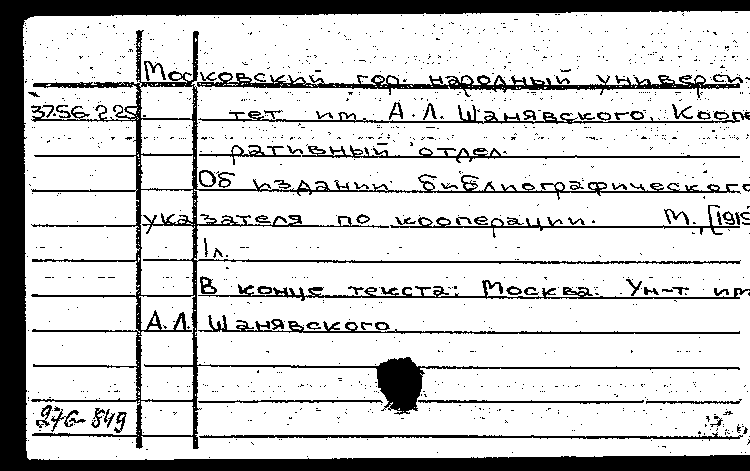 Московский гор. народный универси-
37.56.2.25. тет им. А.Л. Шанявского. Коопе
ративный отдел.
Об издании библиографического
указателя по кооперации. М., [1915
1 л.
В конце текста: Москва. Ун-т им
А.Л. Шанявского.
276-849